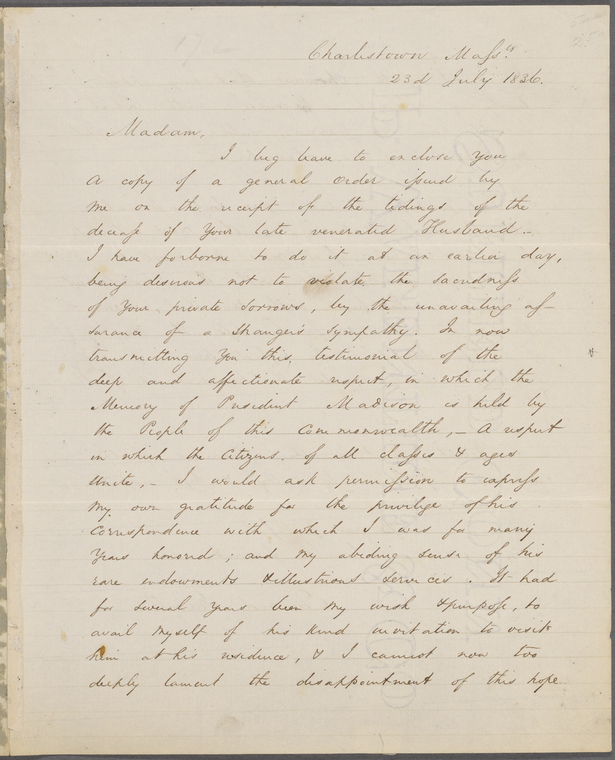 Charlestown Mass.ts
23d July 1836.
Madam,
I beg leave to enclose you
a copy of a general order issued by
me on the receipt of the tidings of the
decease of your late venerated Husband.–
I have forborne to do it at an earlier day,
being desirous not to violate the sacredness
of your private sorrows, by the unavailing as-
surance of a stranger's sympathy. In now
transmitting you this testimonial of the
deep and affectionate respect, in which the
Memory of President Madison is held by
the People of this Commonwealth,– a respect
in which the Citizens of all classes & ages
unite,– I would ask permission to express
my own gratitude for the privilege of his
correspondence with which I was for many
years honored; and my abiding sense of his
rare endowments & illustrious services. It had
for several years been my wish & purpose, to
avail myself of his kind invitation to visit
him at his residence, & I cannot now too
deeply lament the disappointment of this hope